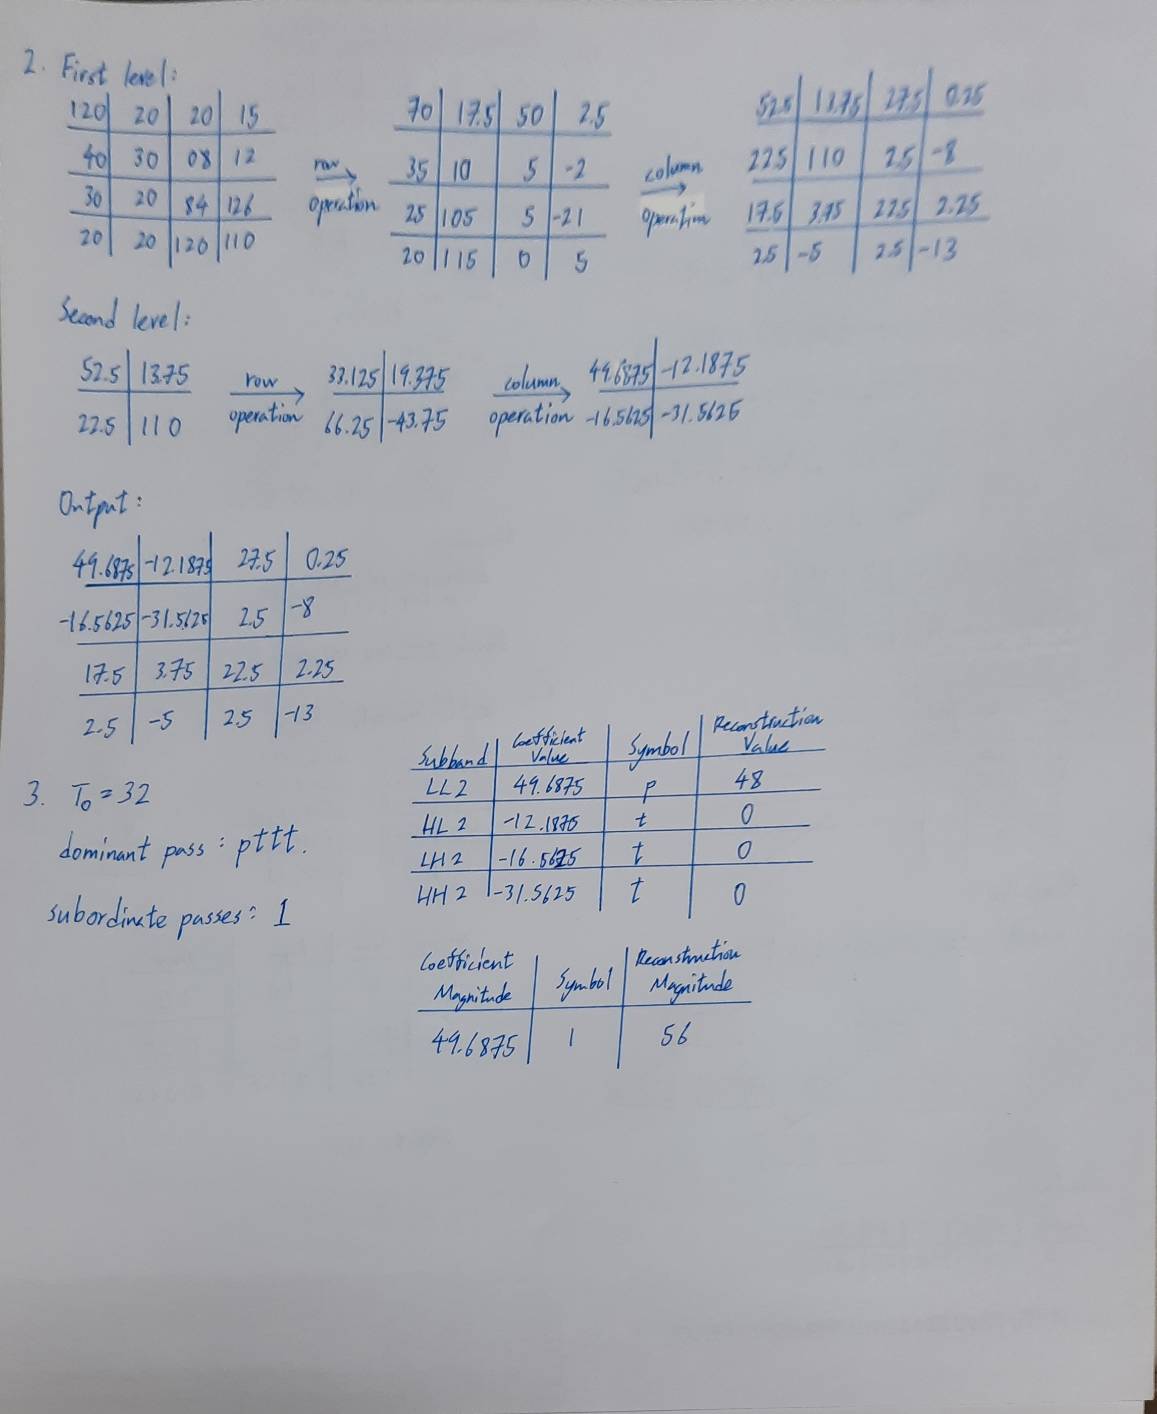 2. First level:
120 20 20 15
40 30 08 12
30 20 84 126
20 20 120 110
row operation
70 17.5 50 2.5
35 10 5 -2
25 105 5 -21
20 115 0 5
column operation
52.5 13.75 27.5 0.25
22.5 110 2.5 -8
17.5 3.75 22.5 2.25
2.5 -5 2.5 -13
Second level:
52.5 13.75
22.5 110
row operation
33.125 19.375
66.25 -43.75
column operation
49.6875 -12.1875
-16.5625 -31.5625
Output:
49.6875 -12.1875 27.5 0.25
-16.5625 -31.5625 2.5 -8
17.5 3.75 22.5 2.25
2.5 -5 2.5 -13
3. T0 = 32
dominant pass : pttt.
subordinate passes: 1
Subband Coefficient Value Symbol Reconstruction Value
LL2 49.6875 p 48
HL2 -12.1875 t 0
LH2 -16.5625 t 0
HH2 -31.5625 t 0
Coefficient Magnitude Symbol Reconstruction Magnitude
49.6875 1 56